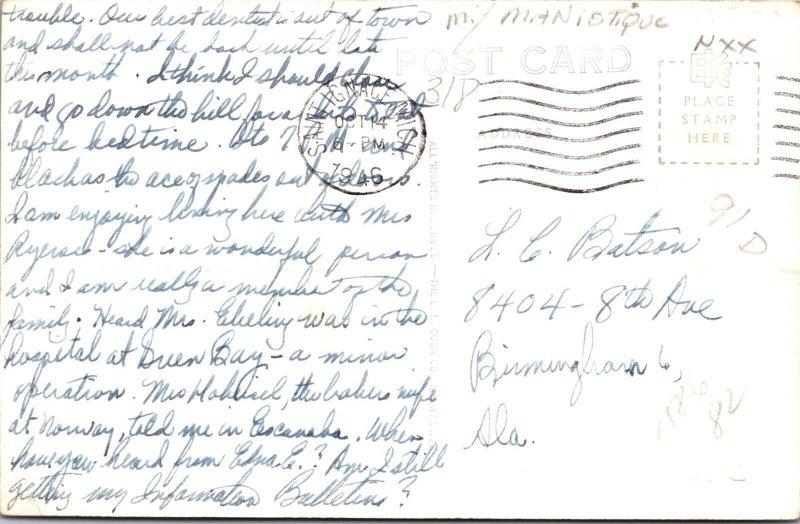 trouble. Our best dentist is out of town
and shall not be back until late
this month. I think I should close
and go down the hill for a
before bedtime. Its 7 P.M. and
black as the ace of spades out of doors.
I am enjoying living here with Mrs
Ryerse - she is a wonderful person
and I am really a member of the
family. Heard Mrs. Ebeling was in the
hospital at Green Bay - a minor
operation. Mrs Hoheisel, the bakers wife
at Norway, told me in Escanaba. When
have you heard from Edna E.? Am I still
getting my Information Bulletins?
MI MANISTIQUE
NXX
POST CARD
318
SAINT IGNACE, MICH
OCT 14
6 - PM
1946
EKC
PLACE
STAMP
HERE
ADDRESS
91
D
L. C. Batson
8404 - 8th Ave
Birmingham 6,
Ala.
82